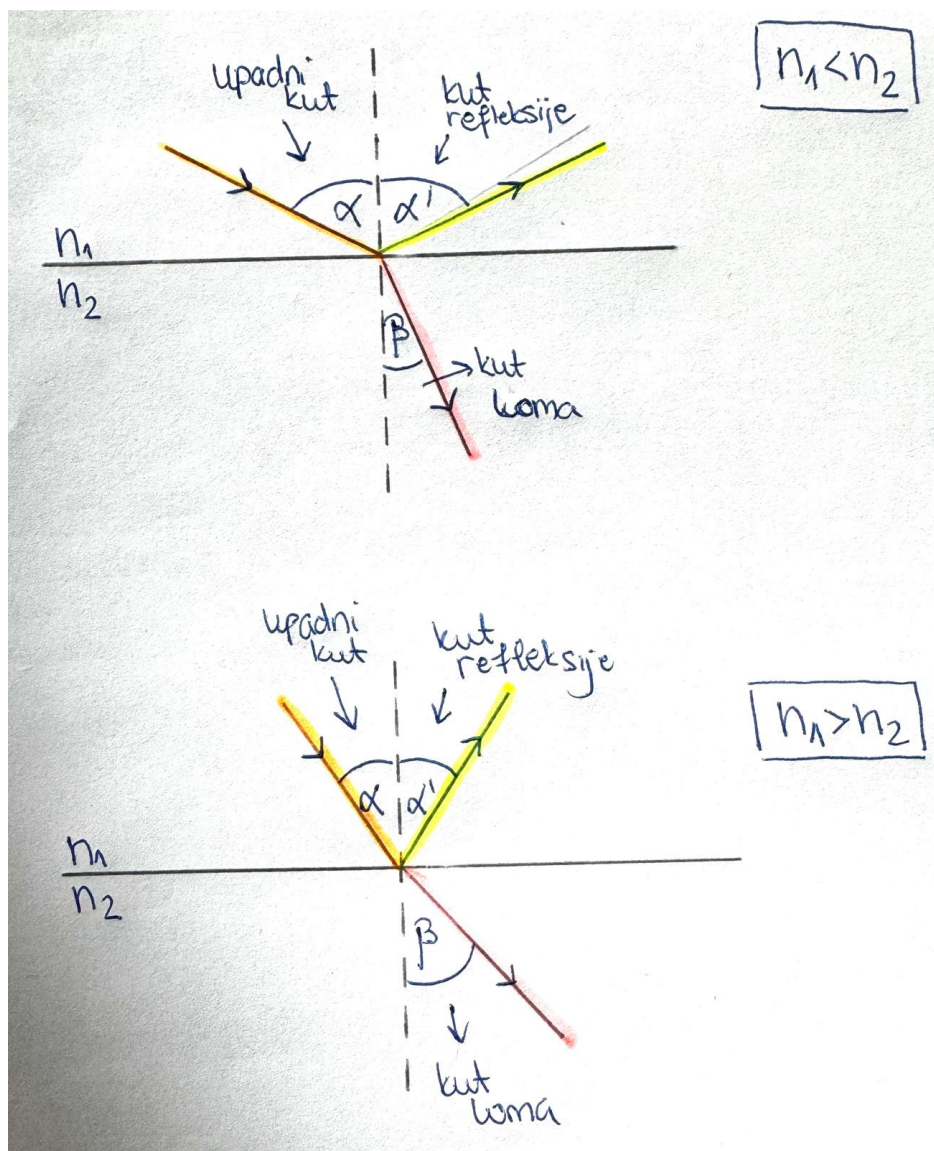 n₁<n₂
upadni
kut
kut
refleksije
α
α'
n₁
n₂
β
kut
loma
upadni
kut
kut
refleksije
n₁>n₂
α
α'
n₁
n₂
β
kut
loma